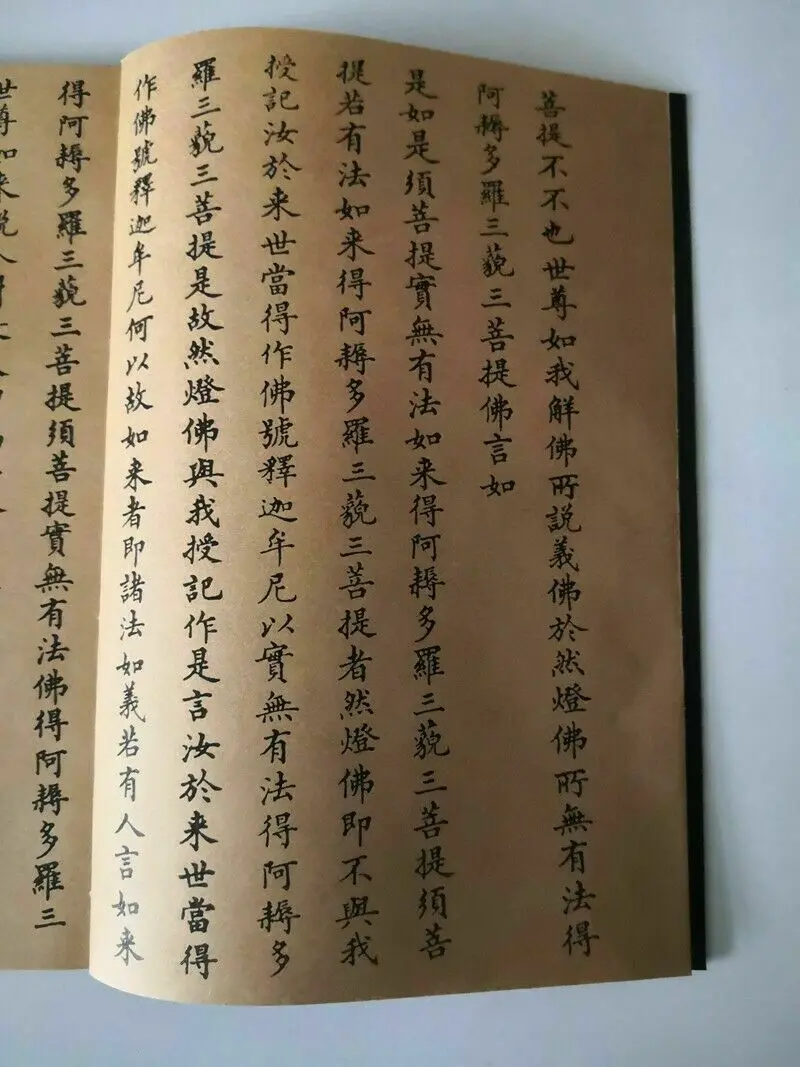 菩提不不也世尊如我解佛所說義佛於然燈佛所無有法得
阿耨多羅三藐三菩提佛言如
是如是須菩提實無有法如来得阿耨多羅三藐三菩提須菩
提若有法如来得阿耨多羅三藐三菩提者然燈佛即不與我
授記汝於来世當得作佛號釋迦牟尼以實無有法得阿耨多
羅三藐三菩提是故然燈佛與我授記作是言汝於来世當得
作佛號釋迦牟尼何以故如来者即諸法如義若有人言如来
得阿耨多羅三藐三菩提須菩提實無有法佛得阿耨多羅三
世尊如来說人